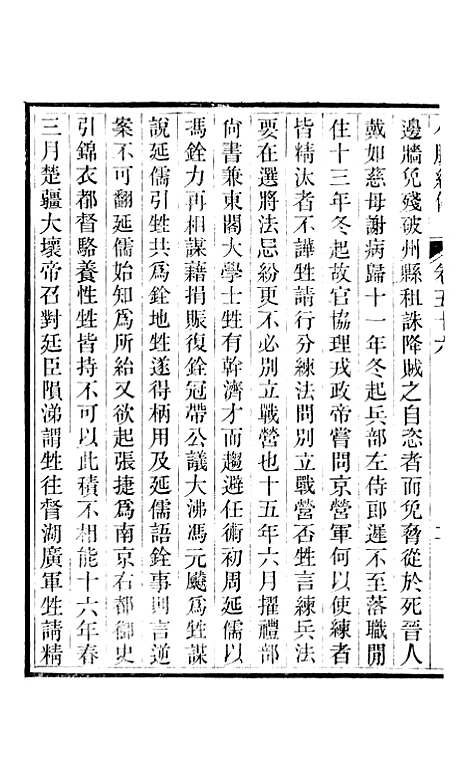 小腆紀傳 卷五十六 二
邊牆免殘破州縣租誅降賊之自恣者而免脅從於死晉人
戴如慈母謝病歸十一年冬起兵部左侍郎遲不至落職閒
住十三年冬起故官協理戎政帝嘗問京營軍何以使練者
皆精汰者不譁甡請行分練法問別立戰營否甡言練兵法
要在選將法忌紛更不必別立戰營也十五年六月擢禮部
尙書兼東閣大學士甡有幹濟才而趨避任術初周延儒以
馮銓力再相謀藉捐賑復銓冠帶公議大沸馮元飈爲甡謀
說延儒引甡共爲銓地甡遂得柄用及延儒語銓事則言逆
案不可翻延儒始知爲所紿又欲起張捷爲南京右都御史
引錦衣都督駱養性甡皆持不可以此積不相能十六年春
三月楚疆大壞帝召對廷臣隕涕謂甡往督湖廣軍甡請精